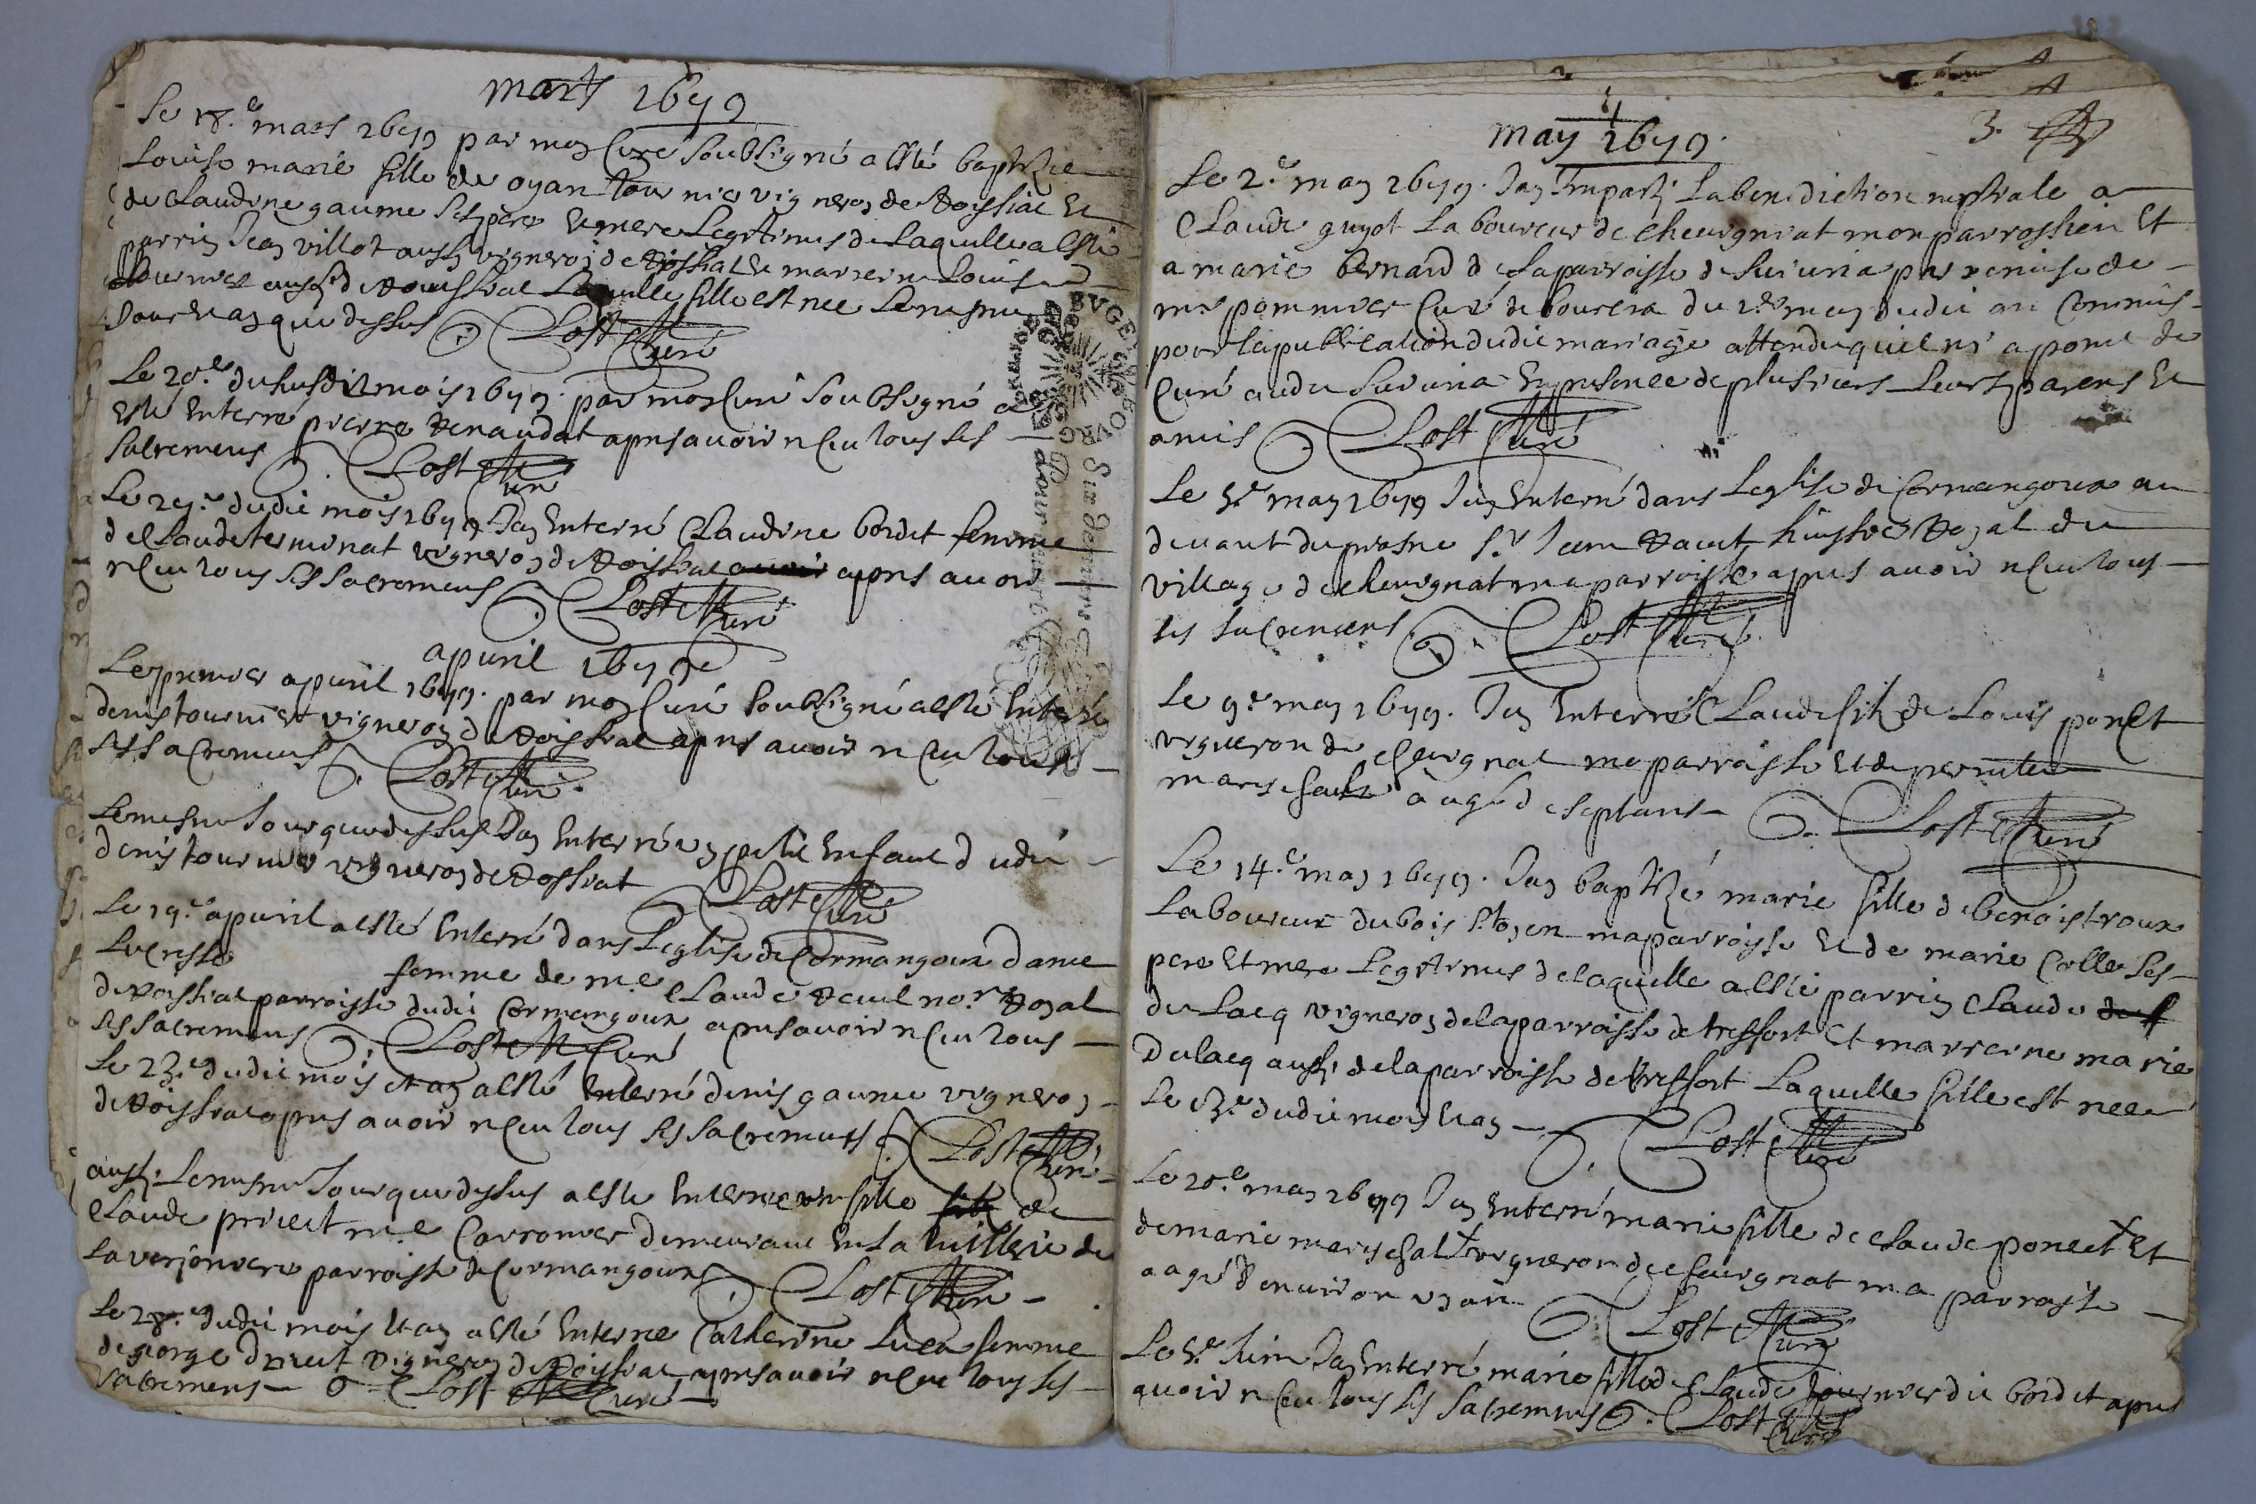 mars 1679
Le 18.e mars 1679 par moy Curé soubsigné a esté baptizée
Louise marie fille de oyan tournier vigneron de Roissiat et
de Claudine gaume ses pere et mere Legitimes de laquelle a esté
parrin Jean villot aussy vigneron de Roissiat et marrerne Louise
tournier aussy de Roissiat Laquelle fille est nee le mesme
Jour et an que dessus Lost Curé
Le 20.e du susdit mois 1679. par moy Curé soubsigné a
esté Enterré pierre Renaudat apres avoir receu tous ses
sacremens Lost Curé
Le 29.e dudit mois 1679 Jay Enterré Claudine bordet femme
de Claude terminat vigneron de Roissiat avoir apres avoir
receu tous ses sacremens Lost Curé
apuril 1679
Le premier apuril 1679. par moy Curé soubsigné a esté Enterré
denis tournier vigneron de Roissiat apres avoir receu tous
ses sacremens Lost Curé
Le mesme Jour que dessus Jay Enterré un petit Enfant dudit
denis tournier vigneron de Rossiat Lost Curé
Le 19.e apuril a esté Enterré dans Leglise de Cormangoux dame
Lucresse femme de m.e Claude Revel no.re Royal
de Roissiat parroisse dudit Cormangoux apres avoir receu tous
ses sacremens Lost Curé
Le 23.e dudit mois et an a esté Enterré denis gaume vigneron
de Roissiat apres avoir receu tous ses sacremens Lost Curé
aussy Le mesme Jour que dessus a esté Enterrée une fille de
Claude m.e Carronier demeurant En La tuillerie de
La verjonniere parroisse de Cormangoux Lost Curé
Le 28.e dudit mois et an a esté Enterree Catherine Luca femme
de george vigneron de Roissiat apres avoir receu tous ses
sacremens Lost Curé
BVGEY
Six deniers
3.
may 1679.
Le 2.e may 1679. Jay Imparty La benediction nuptiale a
Claude guyot Laboureur de Cheuignat mon parrossien Et
a marie bernard de la parroisse de Siriuria par remise de
m.re pommier Curé de du may dudit an Commis
pour la publication dudit mariage attendu quil ni a point de
Curé audit Suriuria En presence de plusieurs Leurs parens et
amis Lost Curé
Le 5.e may 1679 Jay Enterré dans Leglise de Cormangoux au
devant du prosne s.r Jean Ravet huissier Royal du
village de cheuignat ma parroisse apres avoir receu tous
ses sacremens Lost Curé
Le 9.e may 1679. Jay Enterré Claude filz de Louis ponSet
vigneron de cheuignat ma parroisse et de pernette
mareschal aagé de sept ans Lost Curé
Le 14.e may 1679. Jay baptizé marie fille de benoist roux
Laboureur du bois st oyen ma parroisse et de marie Colle ses
pere et mere Legitimes de laquelle a esté parrin Claude
du Lacq vigneron de la parroisse de treffort Et marrerne marie
Dulacq aussy de la parroisse de treffort Laquelle fille est nee
Le 13.e dudit mois et an Lost Curé
Le 20.e may 1679 Jay Enterré marie fille de Claude poncet Et
de marie mareschal vigneron de cheuignat ma parroisse
aagé denuiron un an Lost Curé
Le 5.e Juin Jay Enterré marie fille de Claude tournier dit bordet apres
avoir receu tous ses sacremens Lost Curé